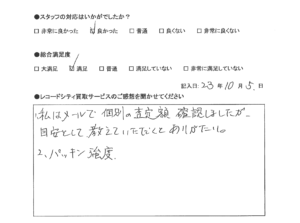 ●スタッフの対応はいかがでしたか？
□ 非常に良かった ☑ 良かった □ 普通 □ 良くない □ 非常に良くない
●総合満足度
□ 大満足 ☑ 満足 □ 普通 □ 満足していない □ 非常に満足していない
記入日: 23年 10月 5日
●レコードシティ買取サービスのご感想を聞かせてください
1、私はメールで個別の査定額確認しましたが、
目安として教えていただくとありがたい。
2、パッキン強度